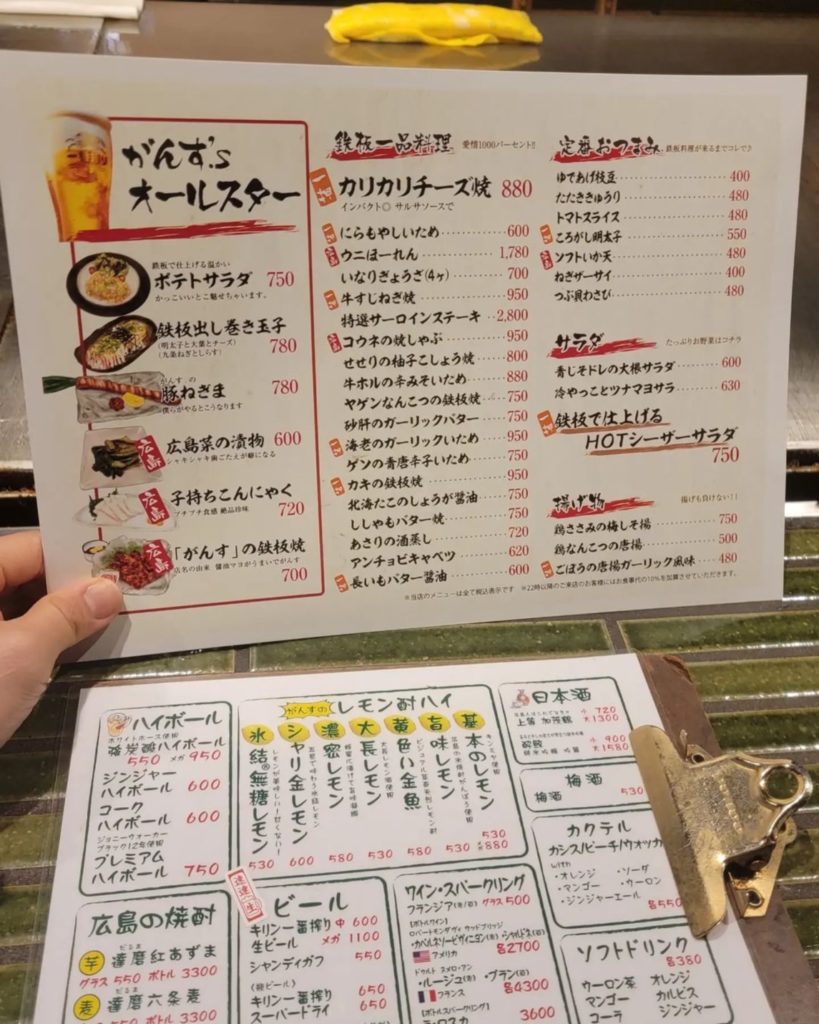 がんす's
オールスター
鉄板で仕上げる温かい
ポテトサラダ 750
かっこいいとこ魅せちゃいます。
鉄板出し巻き玉子
(明太子と大葉とチーズ)
(九条ねぎとしらす) 780
がんす の
豚ねぎま 780
僕らがやるとこうなります
広島菜の漬物 600
シャキシャキ歯ごたえが癖になる
広島
子持ちこんにゃく
プチプチ食感 絶品珍味 720
広島
「がんす」の鉄板焼
店名の由来 醤油マヨがうまいでがんす
700
広島
鉄板一品料理 愛情1000パーセント!!
カリカリチーズ焼 880
インパクト◎ サルサソースで
にらもやしいため 600
ウニほーれん 1,780
いなりぎょうざ(4ヶ) 700
牛すじねぎ焼 950
特選サーロインステーキ 2,800
コウネの焼しゃぶ 950
せせりの柚子こしょう焼 800
牛ホルの辛みそいため 880
ヤゲンなんこつの鉄板焼 750
砂肝のガーリックバター 750
海老のガーリックいため 950
ゲソの青唐辛子いため 750
カキの鉄板焼 950
北海たこのしょうが醤油 750
ししゃもバター焼 750
あさりの酒蒸し 720
アンチョビキャベツ 620
長いもバター醤油 600
定番おつまみ 鉄板料理が来るまでコレで♪
ゆであげ枝豆 400
たたききゅうり 480
トマトスライス 480
ころがし明太子 550
ソフトいか天 480
ねぎザーサイ 400
つぶ貝わさび 480
サラダ たっぷりお野菜はコチラ
青じそドレの大根サラダ 600
冷やっことツナマヨサラ 630
鉄板で仕上げる
HOTシーザーサラダ
750
揚げ物 揚げも負けない!!
鶏ささみの梅しそ揚 750
鶏なんこつの唐揚 500
ごぼうの唐揚ガーリック風味 480
※当店のメニューは全て税込表示です ※22時以降のご来店のお客様にはお食事代の10%を加算させていただきます。
ハイボール
ホワイトホース使用
強炭酸ハイボール
550 メガ 950
ジンジャー
ハイボール 600
コーク
ハイボール 600
ジョニーウォーカー
ブラック12年使用
プレミアム
ハイボール 750
広島の焼酎
芋 達磨紅あずま
グラス 550 ボトル 3300
麦 達磨六条麦
550 ボトル 3300
がんすの レモン酎ハイ
基本のレモン
530
大 880
旨味レモン
530
黄色い金魚
580
大長レモン
530
濃密レモン
580
シャリ金レモン
600
氷結®無糖レモン
530
ビール
キリン一番搾り 中 600
生ビール メガ 1100
シャンディガフ 550
キリン一番搾り 650
スーパードライ 650
ワイン・スパークリング
フランジア(赤/白) グラス 500
[ボトルワイン]
ロバートモンダヴィ ウッドブリッジ
・カベルネソーヴィニヨン(赤)・シャルドネ(白)
アメリカ 各2700
・ルージュ(赤) ・ブラン(白)
フランス 各4300
[ボトルスパークリング]
3600
日本酒
上等 加茂鶴 小 720
大 1300
小 900
大 1580
梅酒
梅酒 530
カクテル
カシス/ピーチ/ウォッカ
with
・オレンジ ・ソーダ
・マンゴー ・ウーロン
・ジンジャーエール
各550
ソフトドリンク
各380
ウーロン茶 オレンジ
マンゴー カルピス
コーラ ジンジャー